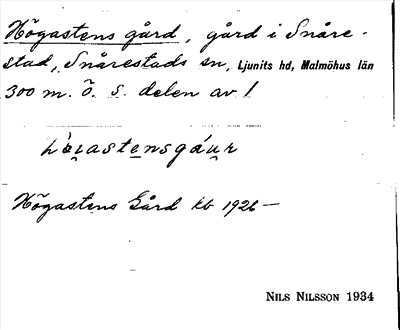 Högastens gård, gård i Snåre-
stad, Snårestads sn, Ljunits hd, Malmöhus län
300 m. ö. s. delen av l
Högastens Gård kb 1926 —
NILS NILSSON 1934